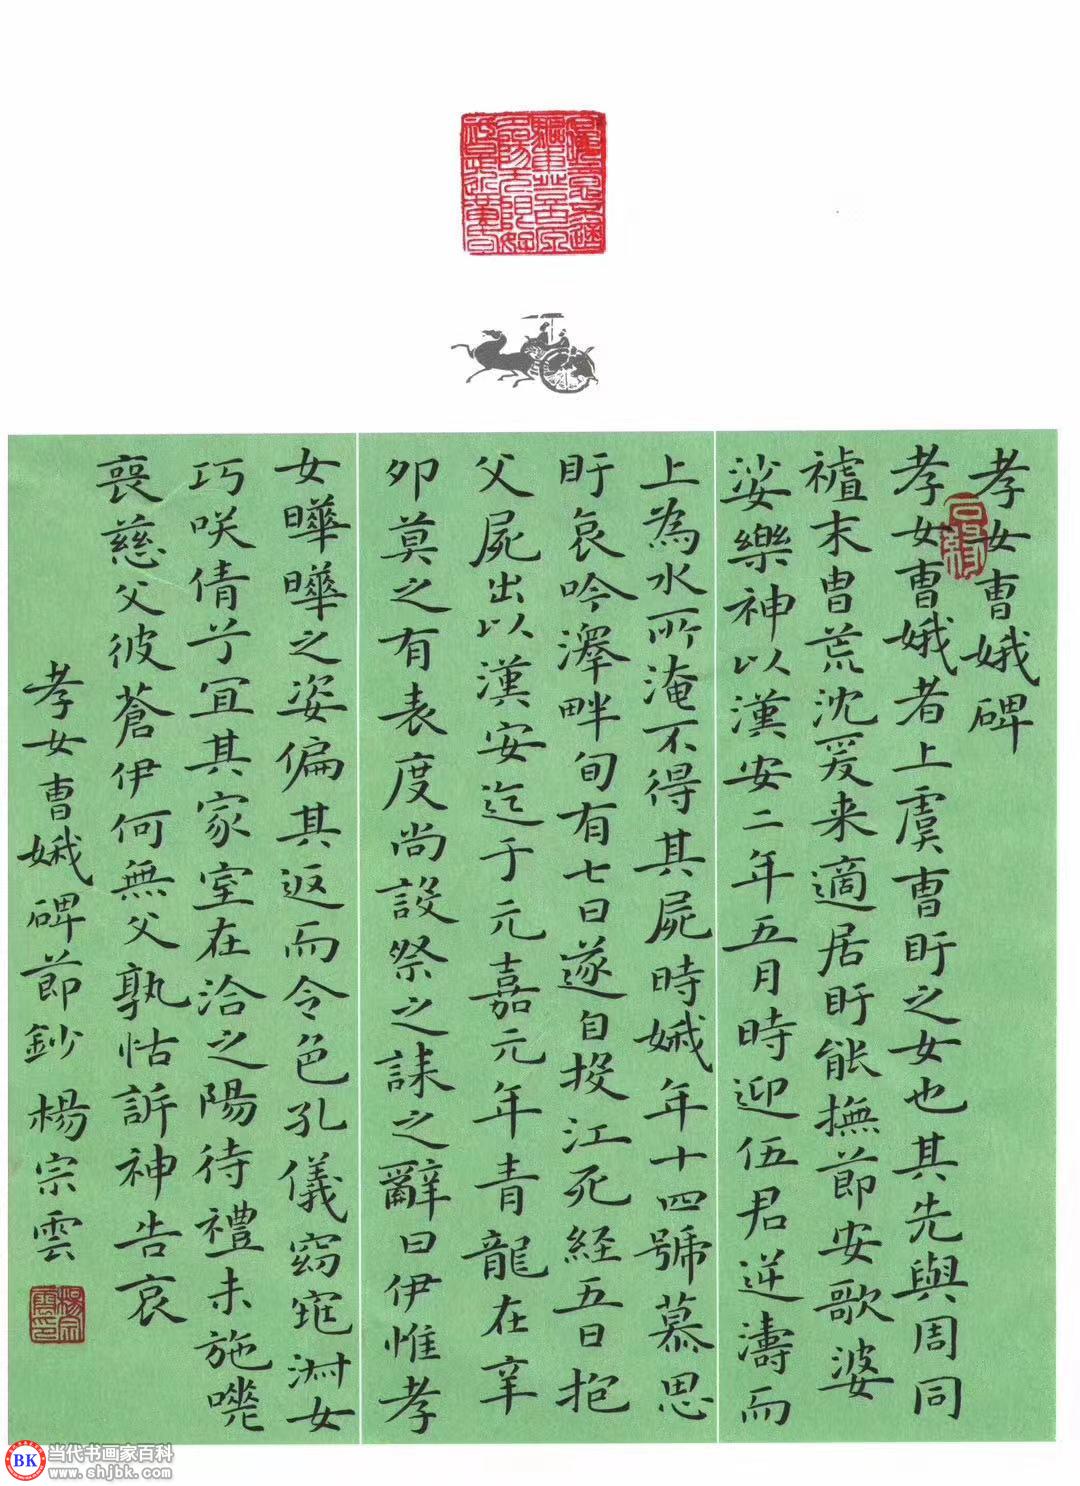 孝女曹娥碑
孝女曹娥者上虞曹盱之女也其先與周同
祖末冑荒沈爰来適居盱能撫節安歌婆
娑樂神以漢安二年五月時迎伍君逆濤而
上為水所淹不得其屍時娥年十四號慕思
盱哀吟澤畔旬有七日遂自投江死経五日抱
父屍出以漢安迄于元嘉元年青龍在辛
卯莫之有表度尚設祭之誄之辭曰伊惟孝
女曄曄之姿偏其返而令色孔儀窈窕淑女
巧咲倩兮宜其家室在洽之陽待禮未施嗟
喪慈父彼蒼伊何無父孰怙訴神告哀
孝女曹娥碑節鈔楊宗雲
楊宗雲印
BK 当代书画家百科
www.shjbk.com